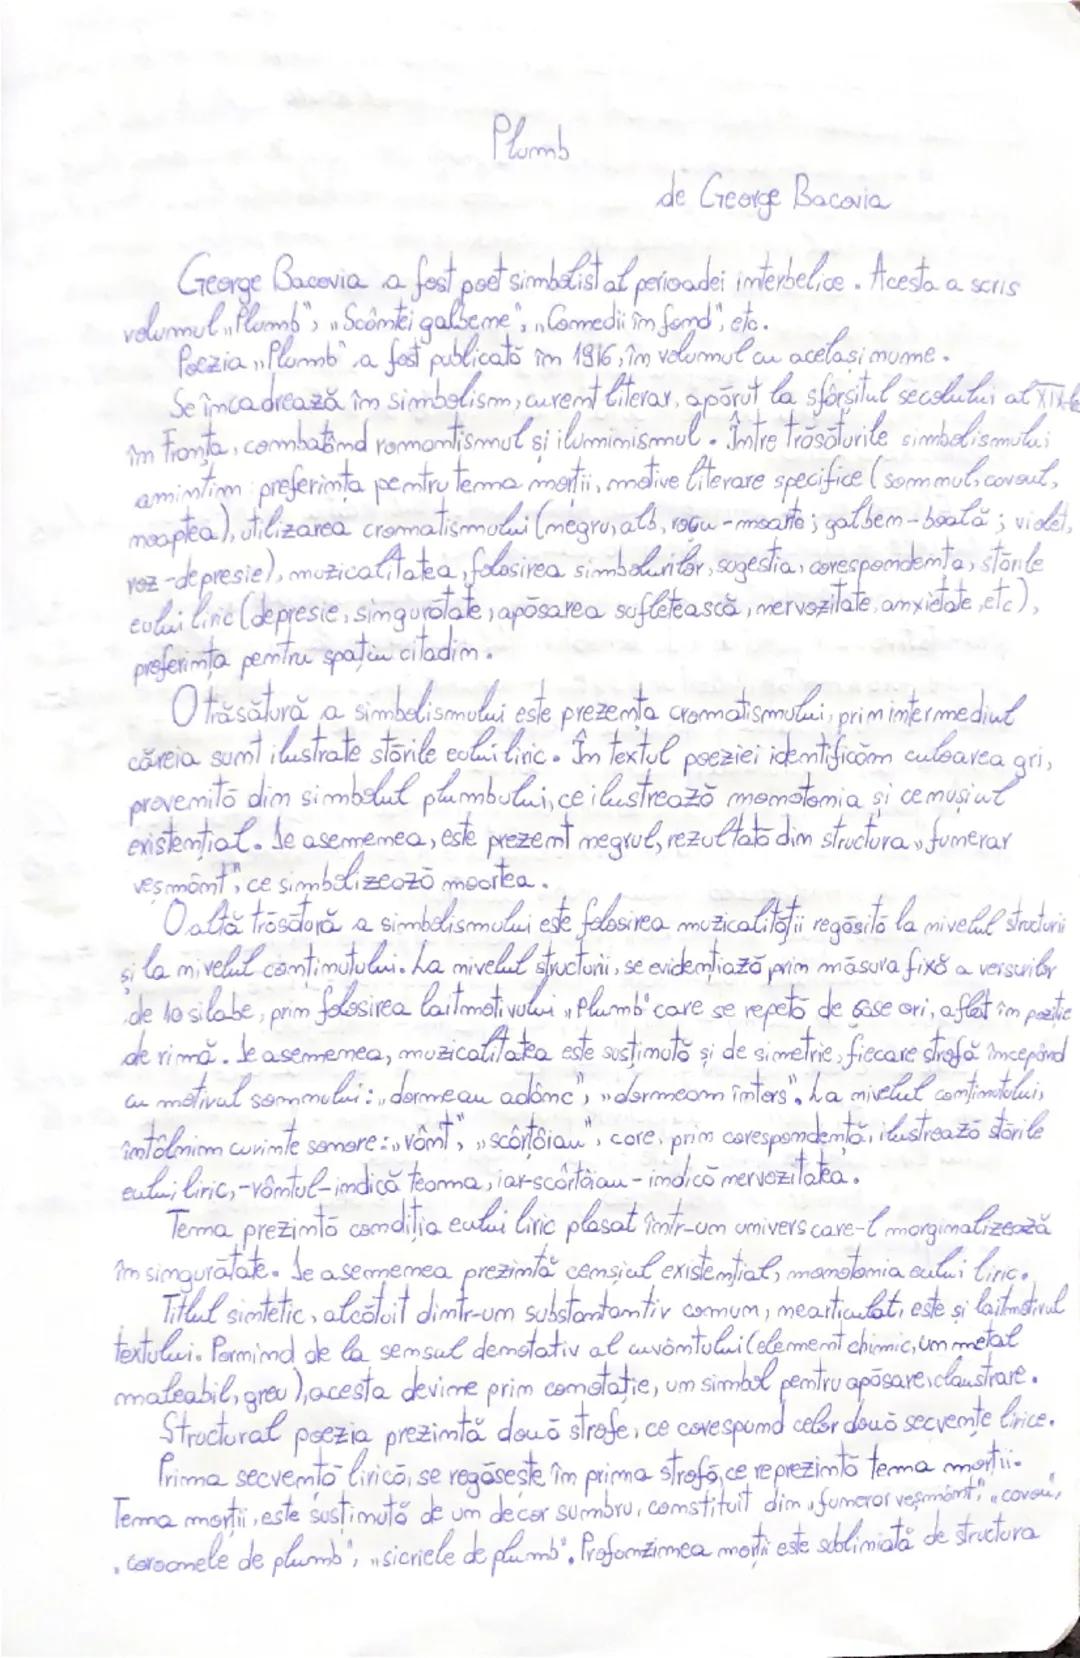 Plumb
de George Bacovia
George Bacovia a fost poet simbolist al perioadei interbelice. Acesta a scris
volumul „Plumb", „Scântei galbene", „Comedii în fond", etc.
Poezia „Plumb" a fost publicată în 1916, în volumul cu același nume.
Se încadrează în simbolism, curent literar, apărut la sfârșitul secolului al XIX-le
în Franța, combatând romantismul și iluminismul. Între trăsăturile simbolismului
amintim preferința pentru tema morții, motive literare specifice (somnul, cavoul,
noaptea), utilizarea cromatismului (negru, alb, roșu - moarte; galben - boală; violet,
roz - depresie), muzicalitatea, folosirea simbolurilor, sugestia, corespondența, stările
eului liric (depresie, singurătate, apăsarea sufletească, nervozitate, anxietate, etc),
preferința pentru spațiu citadin.
O trăsătură a simbolismului este prezența cromatismului, prin intermediul
căreia sunt ilustrate stările eului liric. În textul poeziei identificăm culoarea gri,
provenită din simbolul plumbului, ce ilustrează monotonia și cenușiul
existențial. De asemenea, este prezent negrul, rezultată din structura „funerar
veșmânt", ce simbolizează moartea.
O altă trăsătură a simbolismului este folosirea muzicalității regăsită la nivelul structurii
și la nivelul conținutului. La nivelul structurii, se evidențiază prin măsura fixă a versurilor
de 10 silabe, prin folosirea laitmotivului „Plumb" care se repetă de șase ori, aflat în poziție
de rimă. De asemenea, muzicalitatea este susținută și de simetrie, fiecare strofă începând
cu motivul somnului: „dormeau adânc", „dormeam întors". La nivelul conținutului,
întâlnim cuvinte sonore: „vânt", „scârțâiau", care, prin corespondență, ilustrează stările
eului liric, - vântul - indică teama, iar - scârțâiau - indică nervozitatea.
Tema prezintă condiția eului liric plasat într-un univers care-l marginalizează
în singurătate. De asemenea prezintă cenșiul existențial, monotonia eului liric.
Titlul sintetic, alcătuit dintr-un substantantiv comun, nearticulat, este și laitmotivul
textului. Pornind de la sensul denotativ al cuvântului (element chimic, un metal
maleabil, greu), acesta devine prin conotație, un simbol pentru apăsare, claustrare.
Structural poezia prezintă două strofe, ce corespund celor două secvențe lirice.
Prima secvență lirică, se regăsește în prima strofă, ce reprezintă tema morții.
Tema morții, este susținută de un decor sumbru, constituit din „funerar veșmânt", „cavou",
„coroanele de plumb", „sicriele de plumb". Profonzimea morții este subliniată de structura